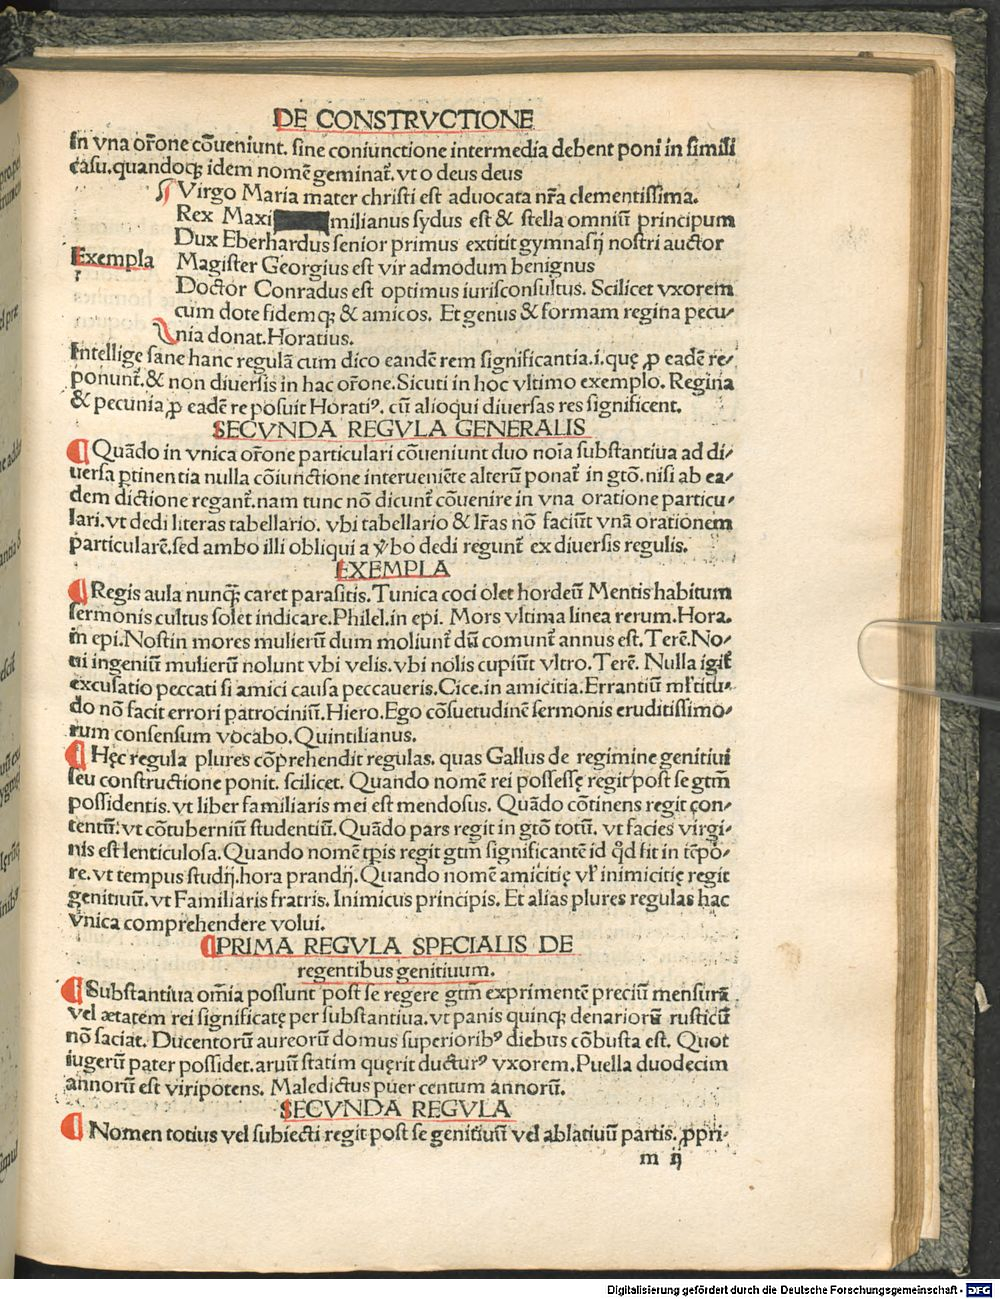 DE CONSTRVCTIONE
In vna or̄one cōueniunt. sine coniunctione intermedia debent poni in simili
casu. quandoqꝫ idem nomē geminat᷑. vt o deus deus
Virgo Maria mater christi est aduocata nr̄a clementissima.
Rex Maxi milianus sydus est & stella omniū principum
Dux Eberhardus senior primus extitit gymnasij nostri auctor
Exempla Magister Georgius est vir admodum benignus
Doctor Conradus est optimus iurisconsultus. Scilicet vxorem
cum dote fidemqꝫ & amicos. Et genus & formam regina pecu⸗
nia donat. Horatius.
Intellige sane hanc regulā cum dico eandē rem significantia. i. quę ꝓ eadē re⸗
ponunt᷑. & non diuersis in hac or̄one. Sicuti in hoc vltimo exemplo. Regina
& pecunia ꝓ eadē re posuit Horatiꝰ. cū alioqui diuersas res significent.
SECVNDA REGVLA GENERALIS
¶ Quādo in vnica or̄one particulari cōueniunt duo noīa substantiua ad di⸗
uersa ꝑtinentia nulla cōiunctione interueniēte alterū ponat᷑ in gtō. nisi ab ea⸗
dem dictione regant᷑. nam tunc nō dicunt᷑ cōuenire in vna oratione particu⸗
lari. vt dedi literas tabellario. vbi tabellario & lr̄as nō faciūt vnā orationem
particularē. sed ambo illi obliqui a v̓bo dedi regunt᷑ ex diuersis regulis.
EXEMPLA
¶ Regis aula nunqꝫ̄ caret parasitis. Tunica coci olet hordeū Mentis habitum
sermonis cultus solet indicare. Philel. in epi. Mors vltima linea rerum. Hora.
in epi. Nostin mores mulierū dum moliunt᷑ dū comunt᷑ annus est. Terē. No⸗
ui ingeniū mulierū nolunt vbi velis. vbi nolis cupiūt vltro. Terē. Nulla igit᷑
excusatio peccati si amici causa peccaueris. Cice. in amicitia. Errantiū ml̄titu⸗
do nō facit errori patrociniū. Hiero. Ego cōsuetudinē sermonis eruditissimo⸗
rum consensum vocabo. Quintilianus.
¶ Hęc regula plures cōprehendit regulas. quas Gallus de regimine genitiui
seu constructione ponit. scilicet. Quando nomē rei possessę regit post se gtm̄
possidentis. vt liber familiaris mei est mendosus. Quādo cōtinens regit con⸗
tentū. vt cōtuberniū studentiū. Quādo pars regit in gtō totū. vt facies virgi⸗
nis est lenticulosa. Quando nomē tꝑis regit gtm̄ significantē id qd̄ fit in tēpo⸗
re. vt tempus studij. hora prandij. Quando nomē amicitię vl̓ inimicitię regit
genitiuū. vt Familiaris fratris. Inimicus principis. Et alias plures regulas hac
vnica comprehendere volui.
¶ PRIMA REGVLA SPECIALIS DE
regentibus genitiuum.
¶ Substantiua om̄ia possunt post se regere gtm̄ exprimentē preciū mensurā
vel ætatem rei significatę per substantiua. vt panis quinqꝫ denariorū rusticū
nō saciat. Ducentorū aureorū domus superioribꝰ diebus cōbusta est. Quot
iugerū pater possidet. aruū statim quęrit ducturꝰ vxorem. Puella duodecim
annorū est viripotens. Maledictus puer centum annorū.
SECVNDA REGVLA
¶ Nomen totius vel subiecti regit post se genitiuū vel ablatiuū partis. ꝓpri⸗
m ij
Digitalisierung gefördert durch die Deutsche Forschungsgemeinschaft - DFG